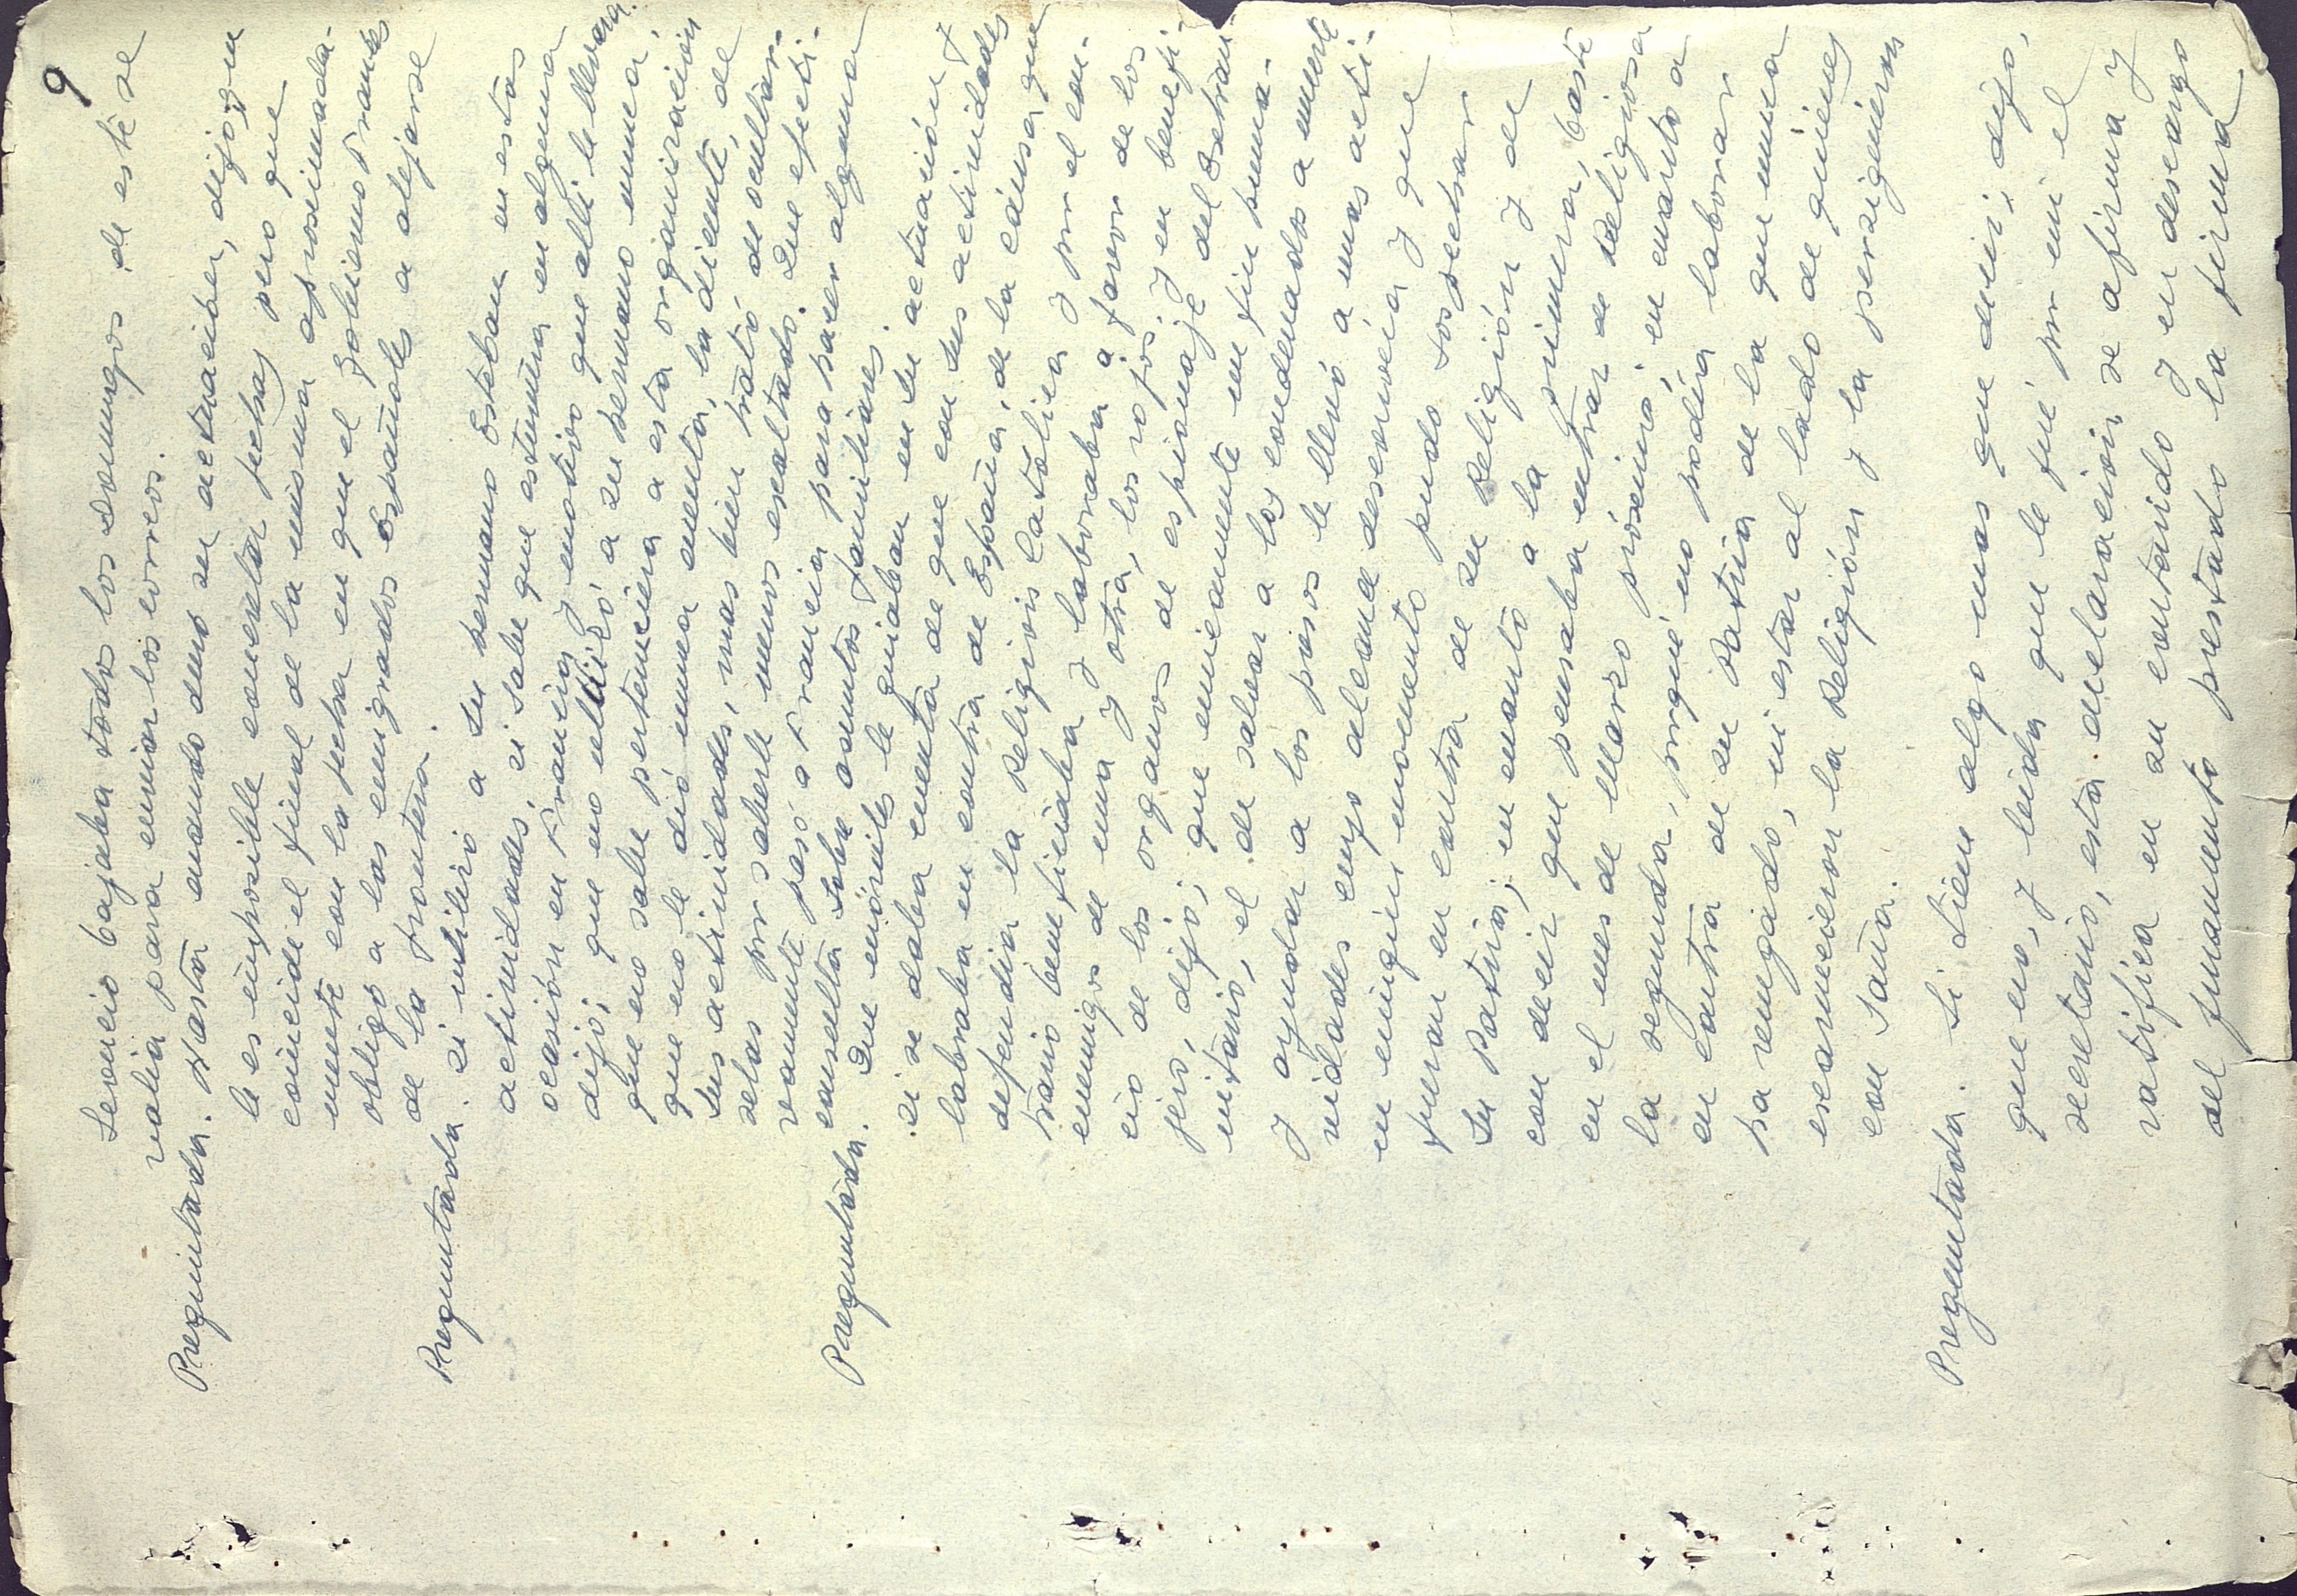 9
Leoncio bajaba todos los Domingos, de este se
valia para enviar los correos.
Preguntada. Hasta cuando duro su actuación, dijo; que
le es imposible concretar fechas pero que
coincide el final de la misma aproximada-
mente con la fecha en que el Gobierno Frances
obligo a los emigrados Españoles a alejarse
de la frontera.
Preguntada. si utilizó a su hermano Esteban en estas
actividades, si sabe que estuviera en alguna
ocasión en Francia y motivo que alli le llevara.
dijo; que no utilizó a su hermano nunca,
que no sabe perteneciera a esta organización
que no le dió nunca cuenta, la diciente, de
sus actividades, mas bien trató de ocultar-
selas por saberle menos exaltado. Que efecti-
vamente pasó a Francia para hacer alguna
consulta sobre asuntos familiares.
Preguntada. Que móviles le guiaban en su actuación y
si se daba cuenta de que con sus actividades
labraba en contra de España, de la causa que
defendia la Religión Catolica y por el con-
trario beneficiaba y laboraba a favor de los
enemigos de una y otra, los rojos, y en benefi-
cio de los organos de espionaje del Extran-
jero, dijo; que unicamente un fin huma-
nitario, el de salvar a los condenados a muerte
y ayudar a los presos le llevó a unas acti-
vidades cuyo alcance desconocia y que
en ningún momento pudo sospechar
fueran en contra de su Religión y de
su Patria; en cuanto a la primera, baste
con decir que pensaba entrar de Religiosa
en el mes de Marzo próximo; en cuanto a
la segunda, porqué no podía laborar
en contra de su Patria de la que nunca
ha renegado, ni estar al lado de quienes
escarnecieron la Religión y la persiguieron
con saña.
Preguntada. Si tiene algo mas que decir; dijo,
que no, y leida que le fué por mi el
secretario, esta declaración se afirma y
ratifica en su contenido y en descargo
del juramento prestado la firma